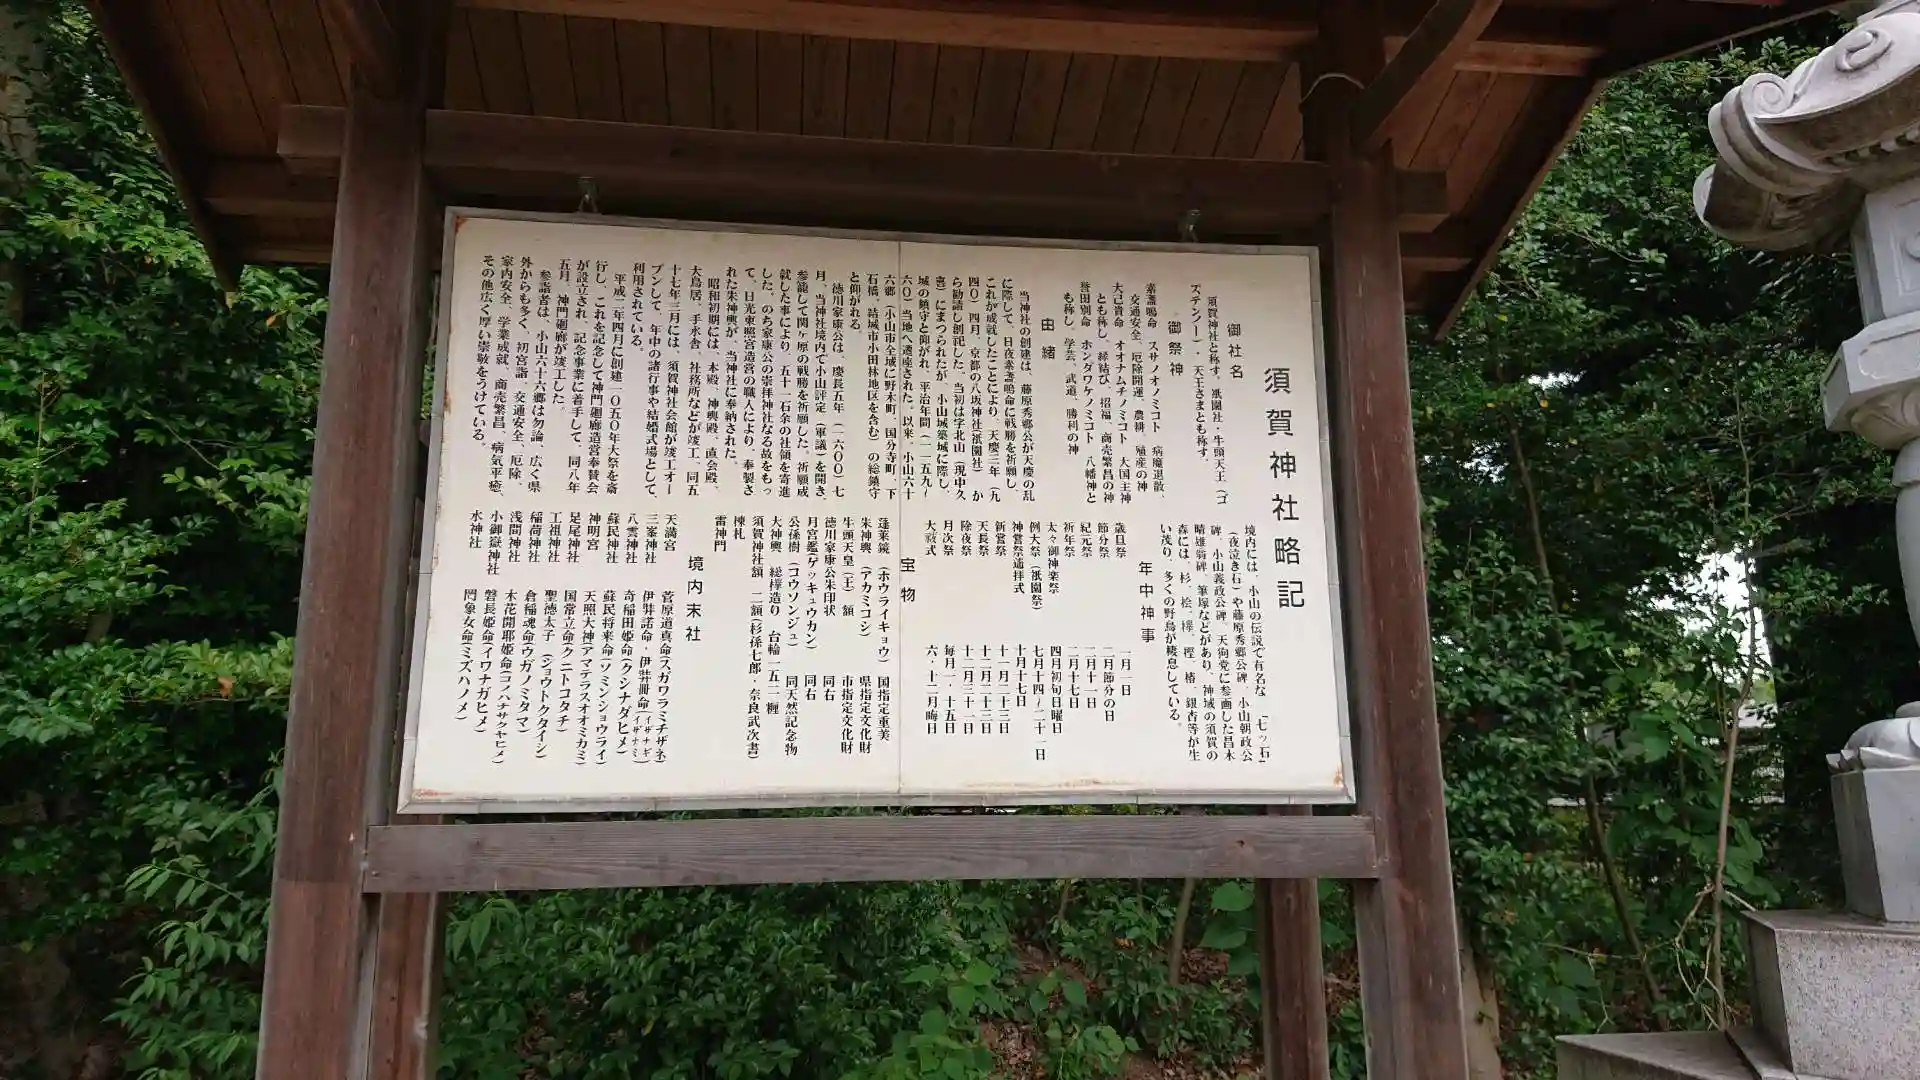 須賀神社略記
御社名
須賀神社と称す。祇園社・牛頭天王（ゴ
ズテンノー）・天王さまとも称す。
御祭神
素盞嗚命 スサノオノミコト 病魔退散、
交通安全、厄除開運、農耕、殖産の神
大己貴命 オオナムチノミコト 大国主神
とも称し、縁結び、招福、商売繁昌の神
誉田別命 ホンダワケノミコト 八幡神と
も称し、学芸、武道、勝利の神
由緒
当神社の創建は、藤原秀郷公が天慶の乱
に際して、日夜素盞嗚命に戦勝を祈願し、
これが成就したことにより、天慶三年（九
四〇）四月、京都の八坂神社（祇園社）か
ら勧請し創祀した。当初は字北山（現中久
喜）にまつられたが、小山城築城に際し、
城の鎮守と仰がれ、平治年間（一一五九〜
六〇）当地へ遷座された。以来、小山六十
六郷（小山市全域に野木町、国分寺町、下
石橋、結城市小田林地区を含む）の総鎮守
と仰がれる。
徳川家康公は、慶長五年（一六〇〇）七
月、当神社境内で小山評定（軍議）を開き、
参籠して関ヶ原の戦勝を祈願した。祈願成
就した事により、五十一石余の社領を寄進
した。のち家康公の崇拝神社なる故をもっ
て、日光東照宮造営の職人により、奉製さ
れた朱神輿が、当神社に奉納された。
昭和初期には、本殿、神輿殿、直会殿、
大鳥居、手水舎、社務所などが竣工、同五
十七年三月には、須賀神社会館が竣工オー
プンして、年中の諸行事や結婚式場として、
利用されている。
平成二年四月に創建一〇五〇年大祭を斎
行し、これを記念して神門廻廊造営奉賛会
が設立され、記念事業に着手して、同八年
五月、神門廻廊が竣工した。
参詣者は、小山六十六郷は勿論、広く県
外からも多く、初宮詣、交通安全、厄除、
家内安全、学業成就、商売繁昌、病気平癒、
その他広く厚い崇敬をうけている。
境内には、小山の伝説で有名な「七ツ石」
（夜泣き石）や藤原秀郷公碑、小山朝政公
碑、小山義政公碑、天狗党に参画した昌木
晴雄翁碑、筆塚などがあり、神域の須賀の
森には、杉、桧、欅、樫、椿、銀杏等が生
い茂り、多くの野鳥が棲息している。
年中神事
歳旦祭 一月一日
節分祭 二月節分の日
紀元祭 二月十一日
祈年祭 二月十七日
太々御神楽祭 四月初旬日曜日
例大祭（祇園祭） 七月十四〜二十一日
神嘗祭遥拝式 十月十七日
新嘗祭 十一月二十三日
天長祭 十二月二十三日
除夜祭 十二月三十一日
月次祭 毎月一・十五日
大祓式 六・十二月晦日
宝物
蓬莱鏡（ホウライキョウ） 国指定重美
朱神輿（アカミコシ） 県指定文化財
牛頭天皇（王）額 市指定文化財
徳川家康公朱印状 同右
月宮鑑（ゲッキュウカン） 同右
公孫樹（コウソンジュ） 同天然記念物
大神輿 総欅造り 台輪一五二糎
須賀神社額 二額（杉孫七郎・奈良武次書）
棟札
雷神門
境内末社
天満宮 菅原道真命（スガワラミチザネ）
三峯神社 伊弉諾命・伊弉冊命（イザナギ・イザナミ）
八雲神社 奇稲田姫命（クシナダヒメ）
蘇民神社 蘇民将来命（ソミンショウライ）
神明宮 天照大神（アマテラスオオミカミ）
足尾神社 国常立命（クニトコタチ）
工祖神社 聖徳太子（ショウトクタイシ）
稲荷神社 倉稲魂命（ウガノミタマ）
浅間神社 木花開耶姫命（コノハナサクヤヒメ）
小御嶽神社 磐長姫命（イワナガヒメ）
水神社 罔象女命（ミズハノメ）